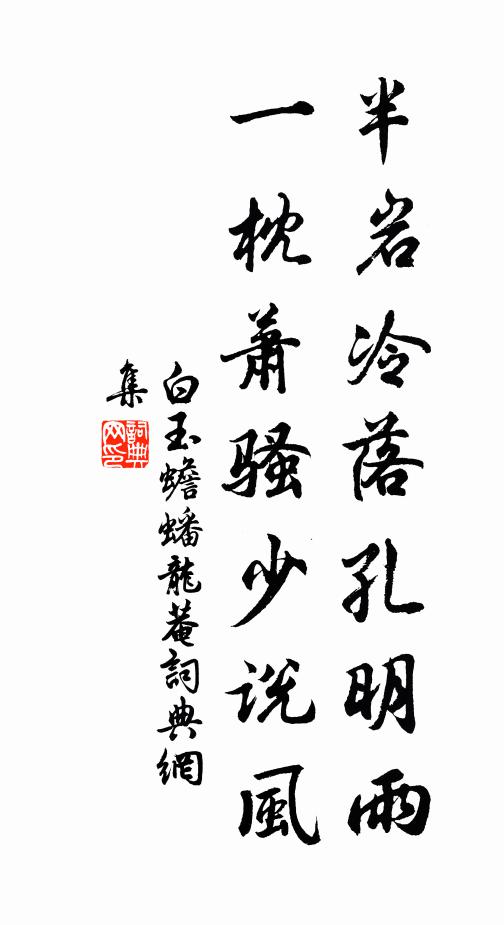 半岩冷落孔明雨
一枕萧骚少说風
白玉蟾蟠龍菴詞典網
集
詞典網印